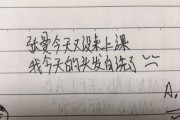 张曼今天又没来上课
我今天的头发白洗了
A.